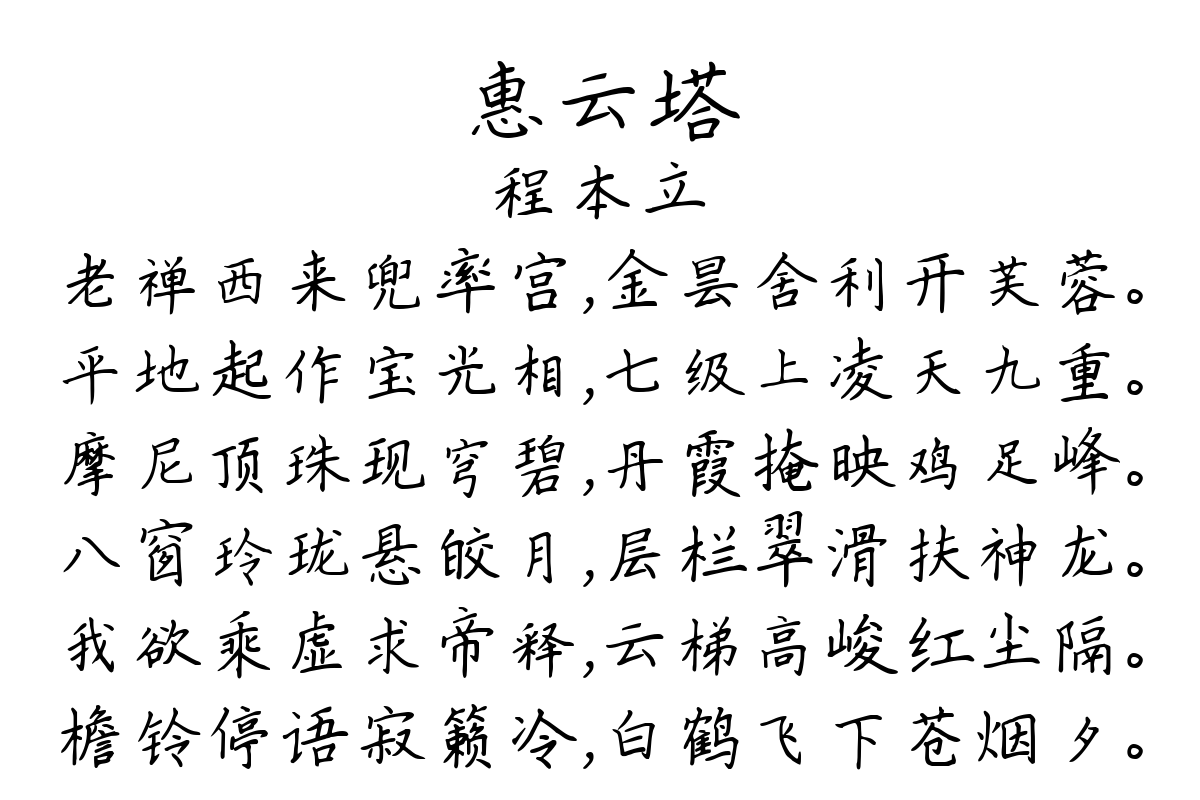 惠云塔
程本立
老禅西来兜率宫,金昙舍利开芙蓉。
平地起作宝光相,七级上凌天九重。
摩尼顶珠现穹碧,丹霞掩映鸡足峰。
八窗玲珑悬皎月,层栏翠滑扶神龙。
我欲乘虚求帝释,云梯高峻红尘隔。
檐铃停语寂籁冷,白鹤飞下苍烟夕。